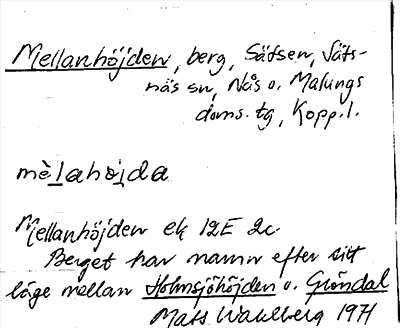 Mellanhöjden, berg, Säfsen, Säfs-
näs sn, Nås o. Malungs
doms. tg, Kopp. l.
mèlahöjda
Mellanhöjden ek 12E 2c
Berget har namn efter sitt
läge mellan Holmsjöhöjden o. Gröndal
Mats Wahlberg 1971